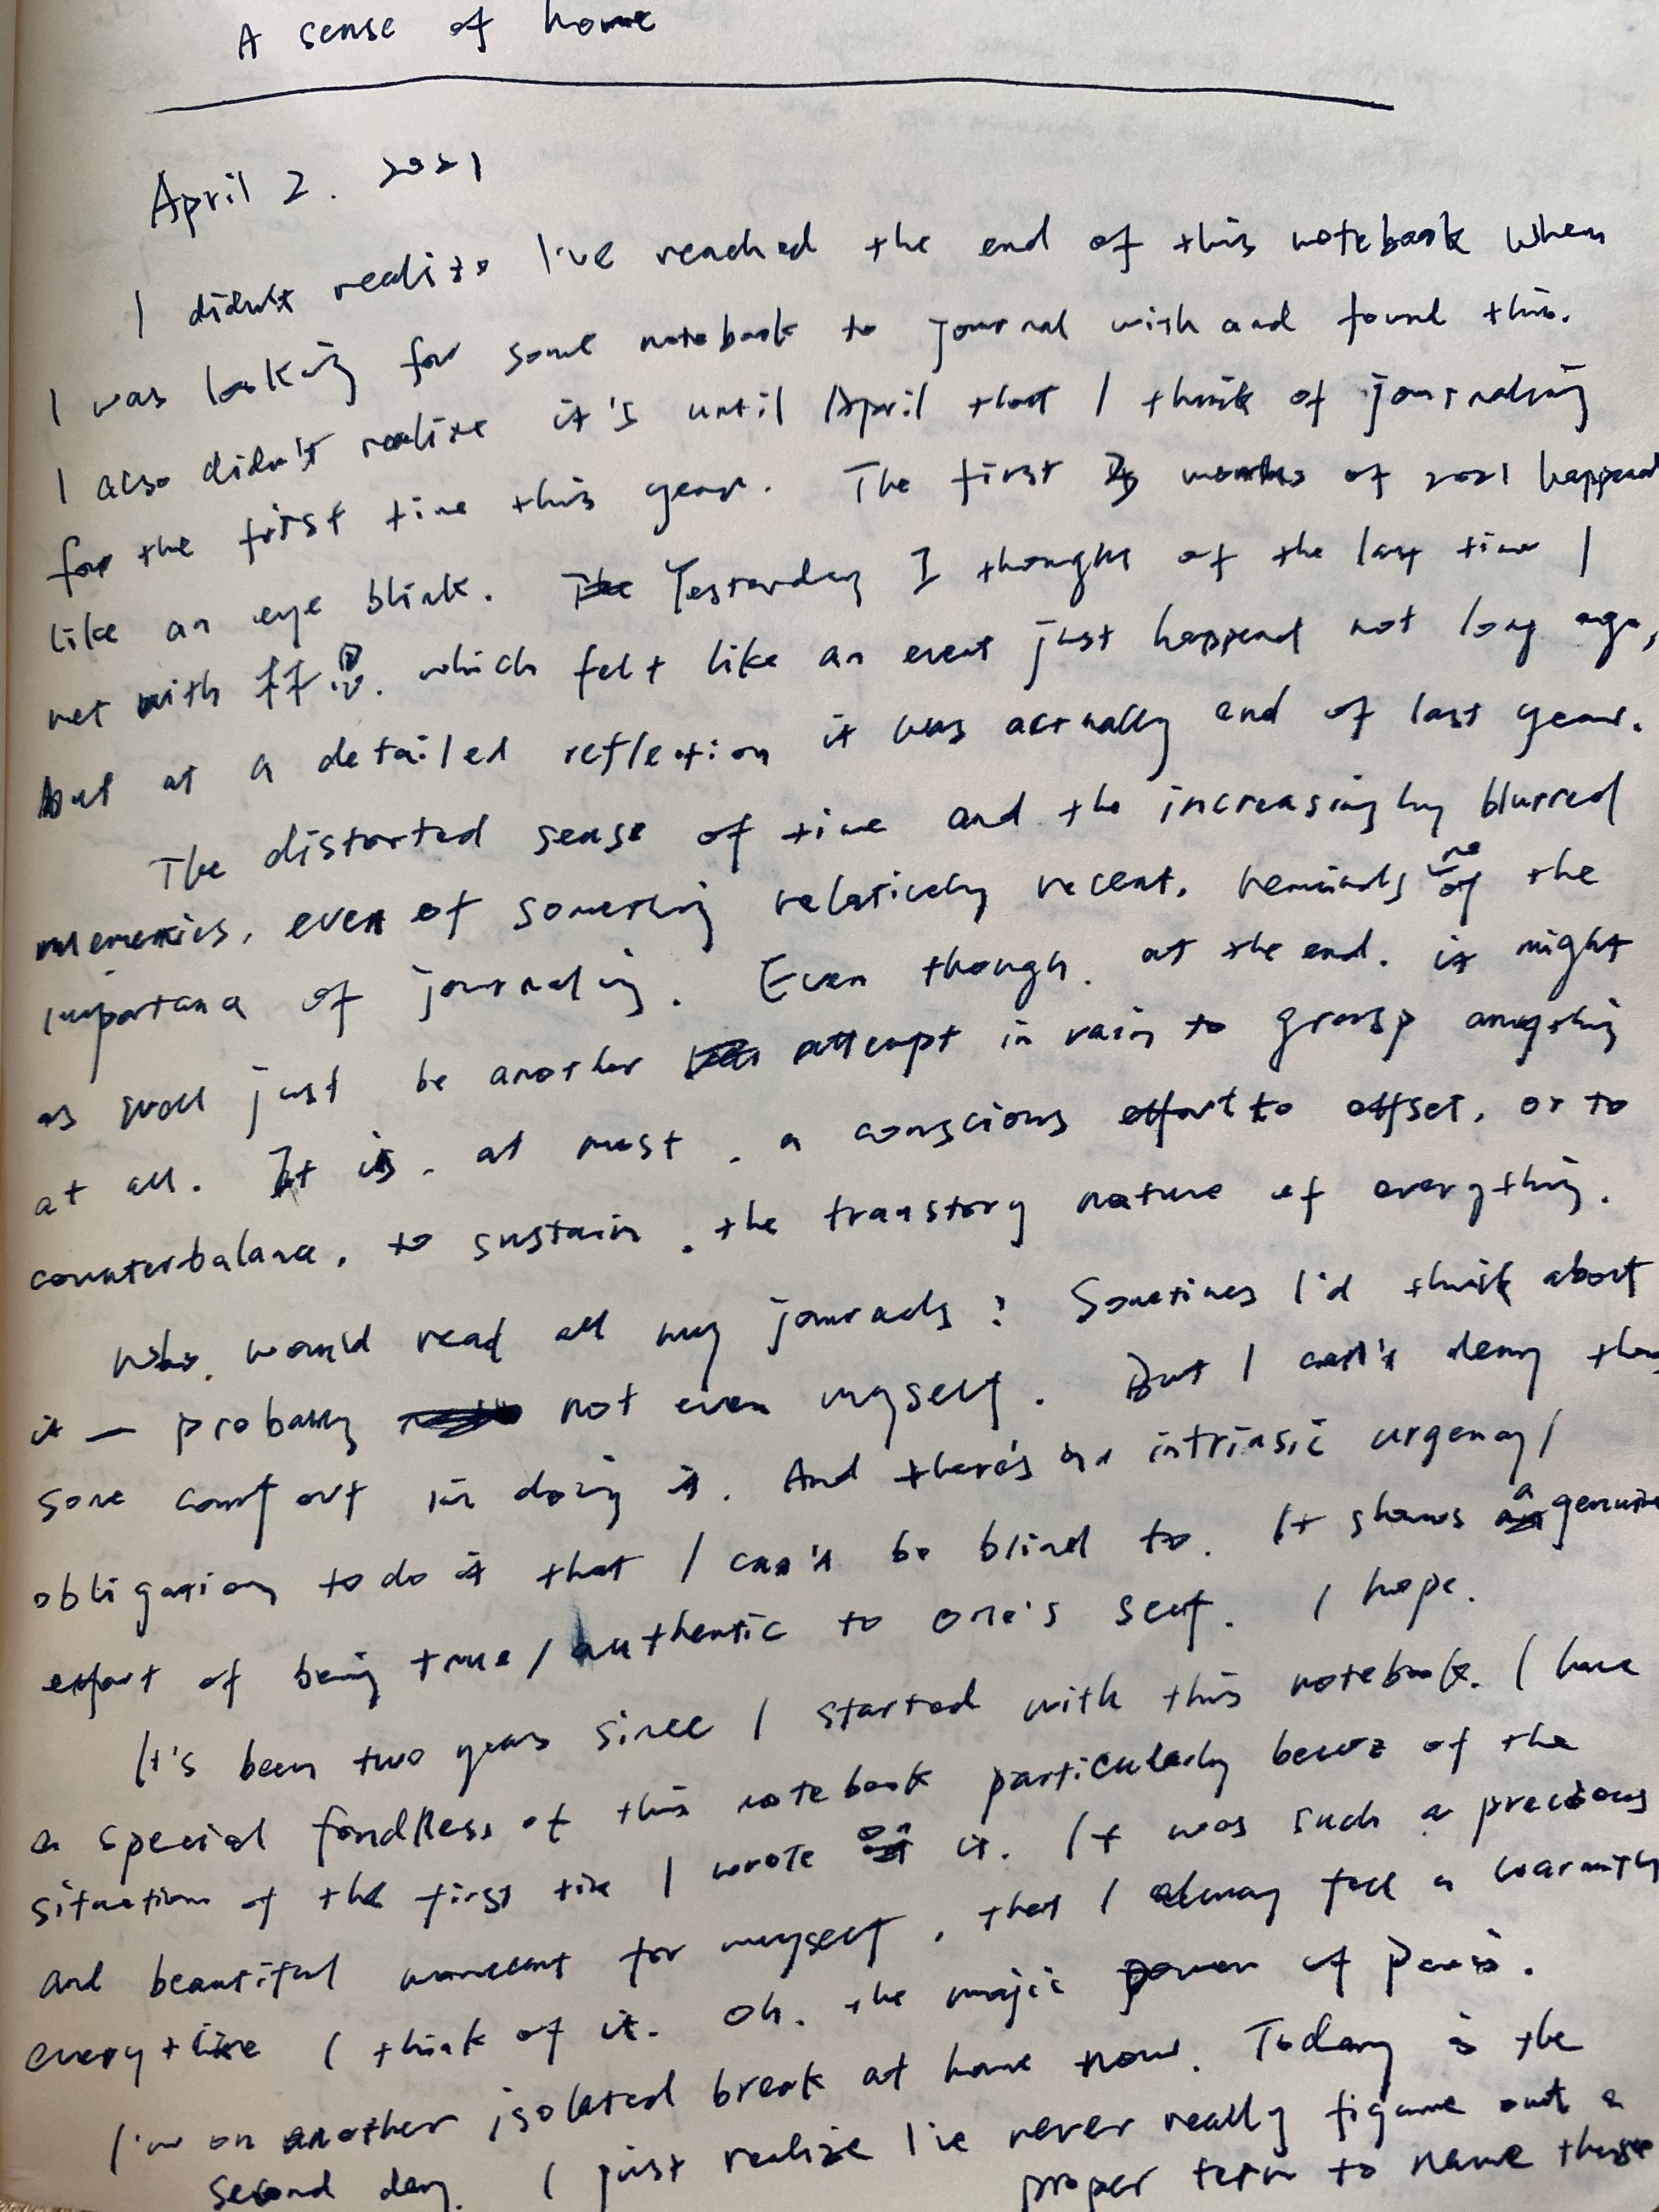 A sense of home
April 2. 2021
I didn't realize I've reached the end of this notebook when
I was looking for some notebook to journal with and found this.
I also didn't realize it's until April that I think of journaling
for the first time this year. The first months of 2021 happened
like an eye blink. Yesterday I thought of the last time I
met with which felt like an event just happend not long ago,
but at a detailed reflection it was actually end of last year.
The distorted sense of time and the increasingly blurred
memories, even of something relatively recent, reminds me of the
importance of journaling. Even though, at the end, it might
as well just be another attempt in vain to grasp anything
at all. It is, at most, a conscious effort to offset, or to
counterbalance, to sustain, the transtory nature of everything.
Who would read all my journals? Sometimes I'd think about
it — probably not even myself. But I can't deny the
some comfort in doing it. And there's an intrinsic urgency/
obligation to do it that I can't be blind to. It shows a genuine
effort of being true/authentic to one's self. I hope.
It's been two years since I started with this notebook. I have
a special fondness of this notebook particularly of the
situation of the first time I wrote on it. It was such a precious
and beautiful moment for myself, that I alway feel a warmth
everytime I think of it. Oh, the magic power of Paris.
I'm on another isolated break at home now. Today is the
second day. I just realize I've never really figure out a
proper term to name these